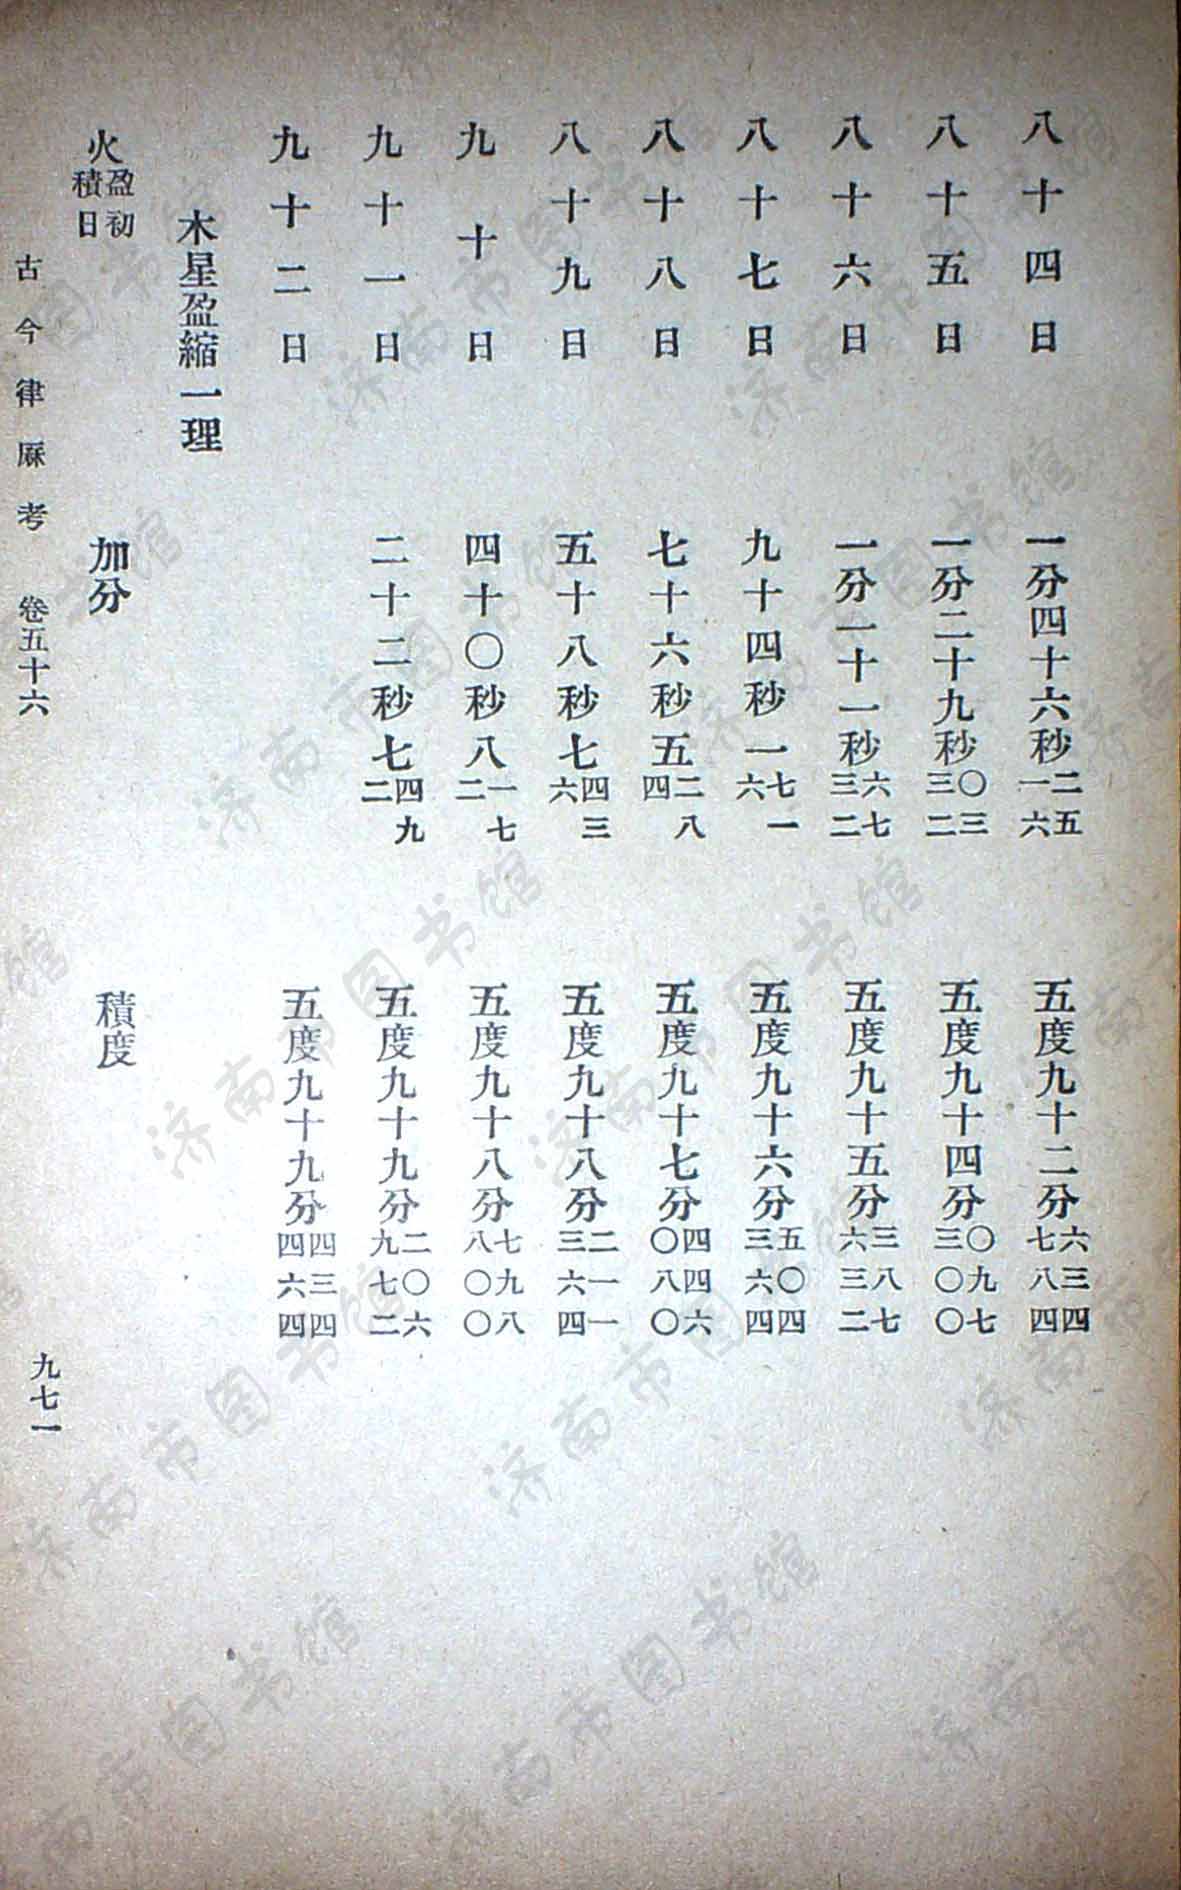 八十四日 一分四十六秒二五一六 五度九十二分六三四七八四
八十五日 一分二十九秒〇三三二 五度九十四分〇九七三〇〇
八十六日 一分一十一秒六七三二 五度九十五分三八七六三二
八十七日 九十四秒一七一六 五度九十六分五〇四三六四
八十八日 七十六秒五二八四 五度九十七分四四六〇八〇
八十九日 五十八秒七四三六 五度九十八分二一一三六四
九十日 四十〇秒八一七二 五度九十八分七九八八〇〇
九十一日 二十二秒七四九二 五度九十九分二〇六九七二
九十二日 五度九十九分四三四四六四
木星盈縮一理
火盈初積日 加分 積度
古今律厤考 卷五十六 九七一
济南市图书馆